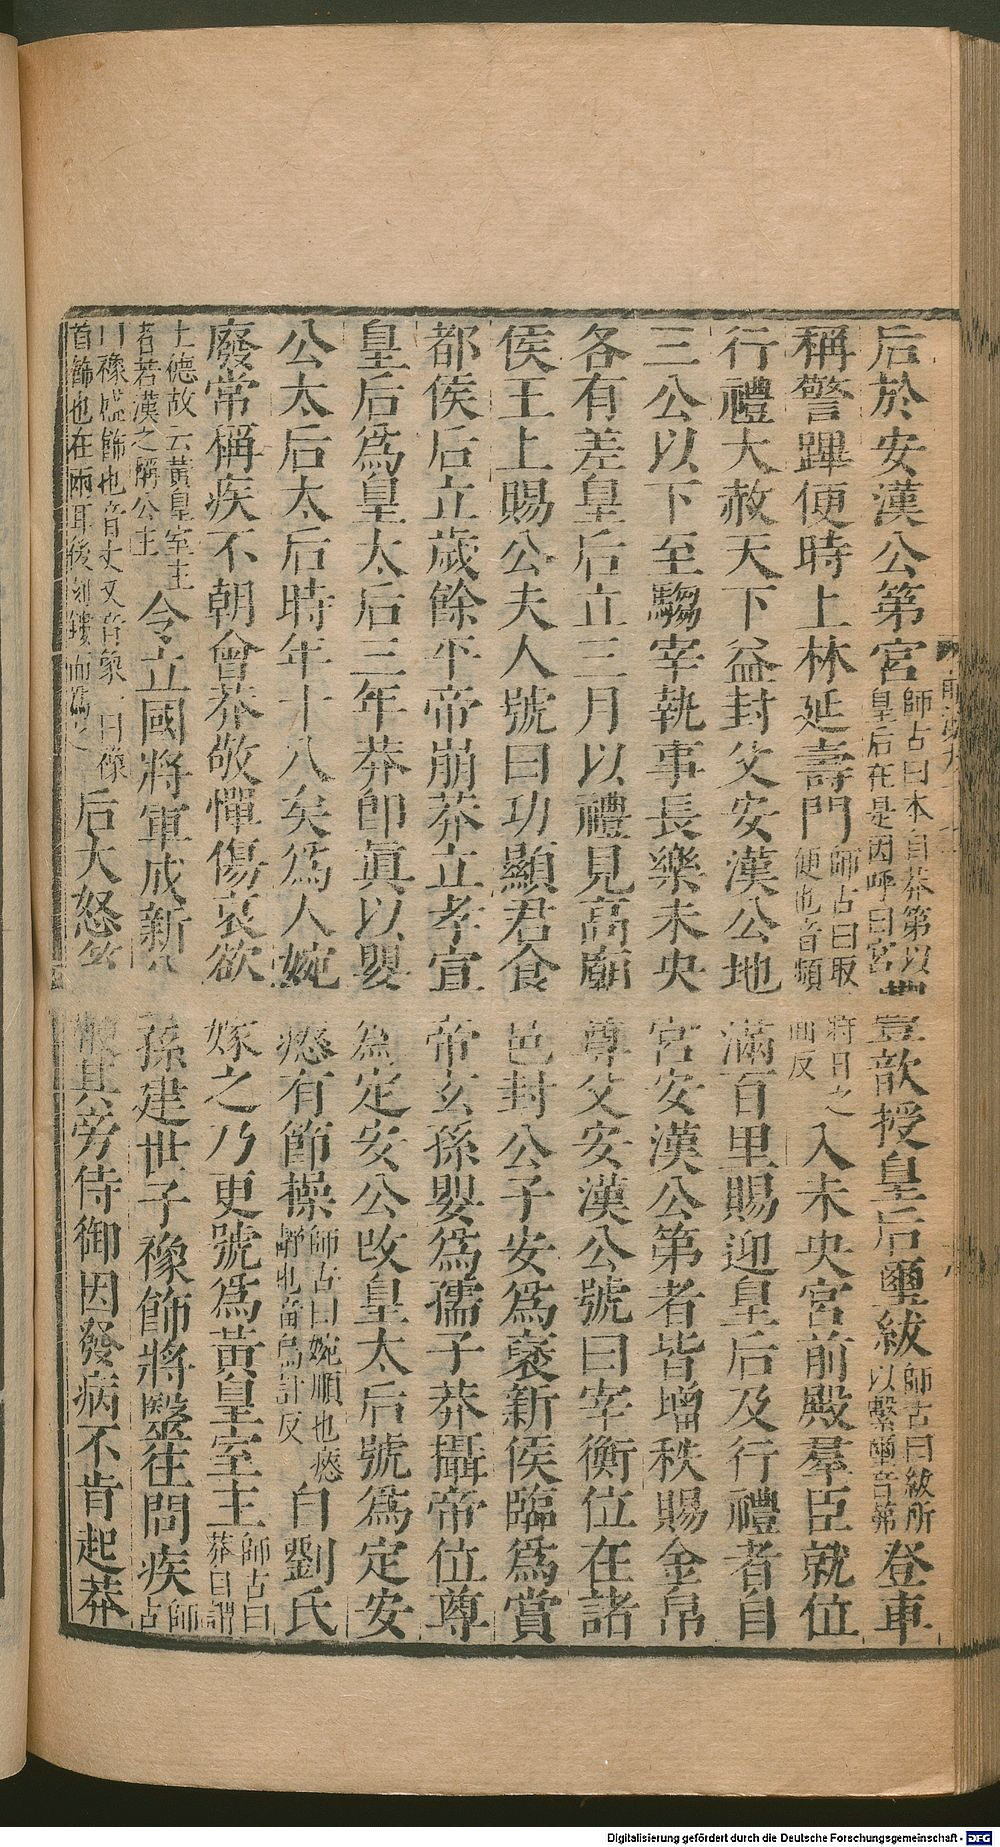 后於安漢公第宮師古曰本自莽第以皇后在是因呼曰宮豐歆授皇后璽紱師古曰紱所以繫璽音弗登車
稱警蹕便時上林延壽門師古曰取便也音頻面反入未央宮前殿羣臣就位
行禮大赦天下益封父安漢公地滿百里賜迎皇后及行禮者自
三公以下至騶宰執事長樂未央宮安漢公第者皆增秩賜金帛
各有差皇后立三月以禮見高廟尊父安漢公號曰宰衡位在諸
侯王上賜公夫人號曰功顯君食邑封公子安為襃新侯臨為賞
都侯后立歲餘平帝崩莽立孝宣帝玄孫嬰為孺子莽攝帝位尊
皇后為皇太后三年莽即眞以嬰為定安公改皇太后號為定安
公太后太后時年十八矣為人婉瘱有節操師古曰婉順也瘱靜也音烏計反自劉氏
廢常稱疾不朝會莽敬憚傷哀欲嫁之乃更號為黃皇室主師古曰莽自謂
土德故云黃皇室主者若漢之稱公主令立國將軍成新公孫建世子襐飾將毉往問疾師古
曰襐盛飾也音丈又音象一曰襐首飾也在兩耳後刻鏤而為之后大怒笞鞭其旁侍御因發病不肯起莽
Digitalisierung gefördert durch die Deutsche Forschungsgemeinschaft - DFG